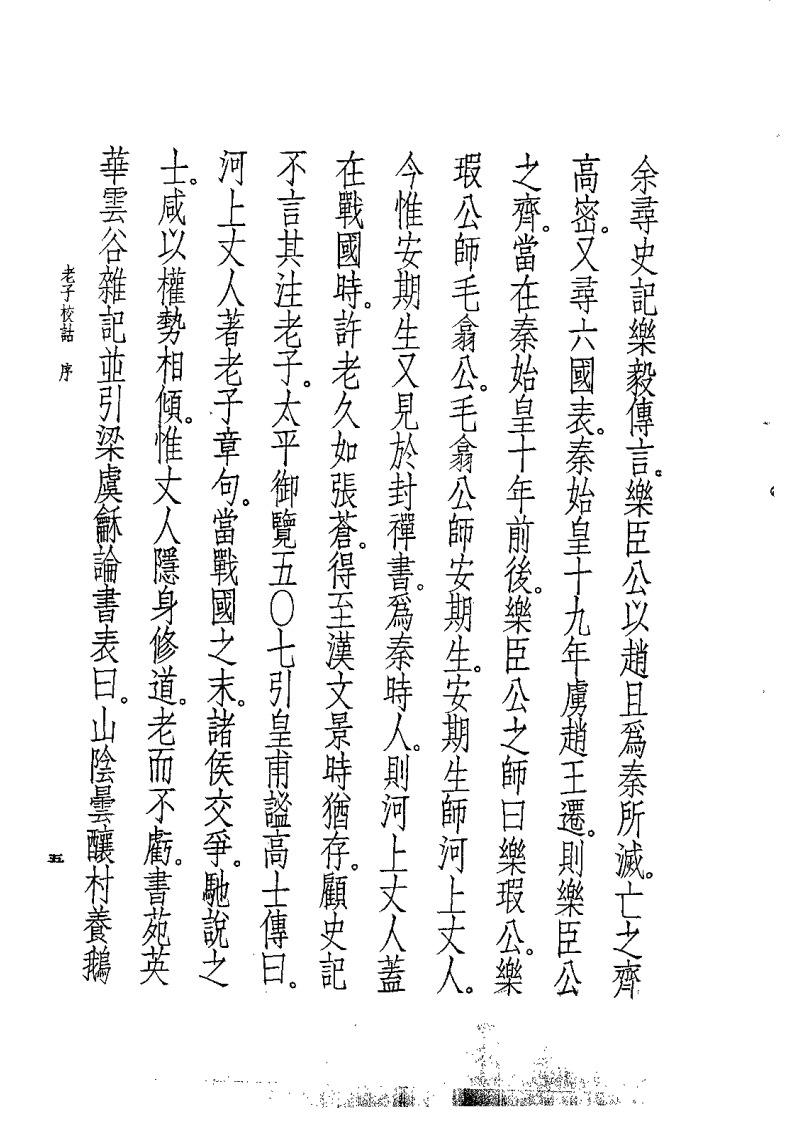 余尋史記樂毅傳言。樂臣公以趙且爲秦所滅。亡之齊
高密。又尋六國表。秦始皇十九年虜趙王遷。則樂臣公
之齊。當在秦始皇十年前後。樂臣公之師曰樂瑕公。樂
瑕公師毛翕公。毛翕公師安期生。安期生師河上丈人。
今惟安期生又見於封禪書。爲秦時人。則河上丈人蓋
在戰國時。許老久如張蒼。得至漢文景時猶存。顧史記
不言其注老子。太平御覽五〇七引皇甫謐高士傳曰。
河上丈人著老子章句。當戰國之末。諸侯交爭。馳說之
士。咸以權勢相傾。惟丈人隱身修道。老而不虧。書苑英
華雲谷雜記並引梁虞龢論書表曰。山陰曇釀村養鵝
老子校詁 序
五